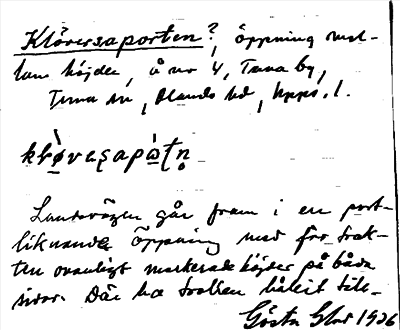 Klöversaporten?, öppning mel-
lan höjder, å nr 4, Tuna by,
Tuna sn, Olands hd, Upps. l.
Landsvägen går fram i en port-
liknande öppning med för trak-
ten ovanligt markerade höjder på båda
sidor. Där ha trollen hållit till.
Gösta 1926